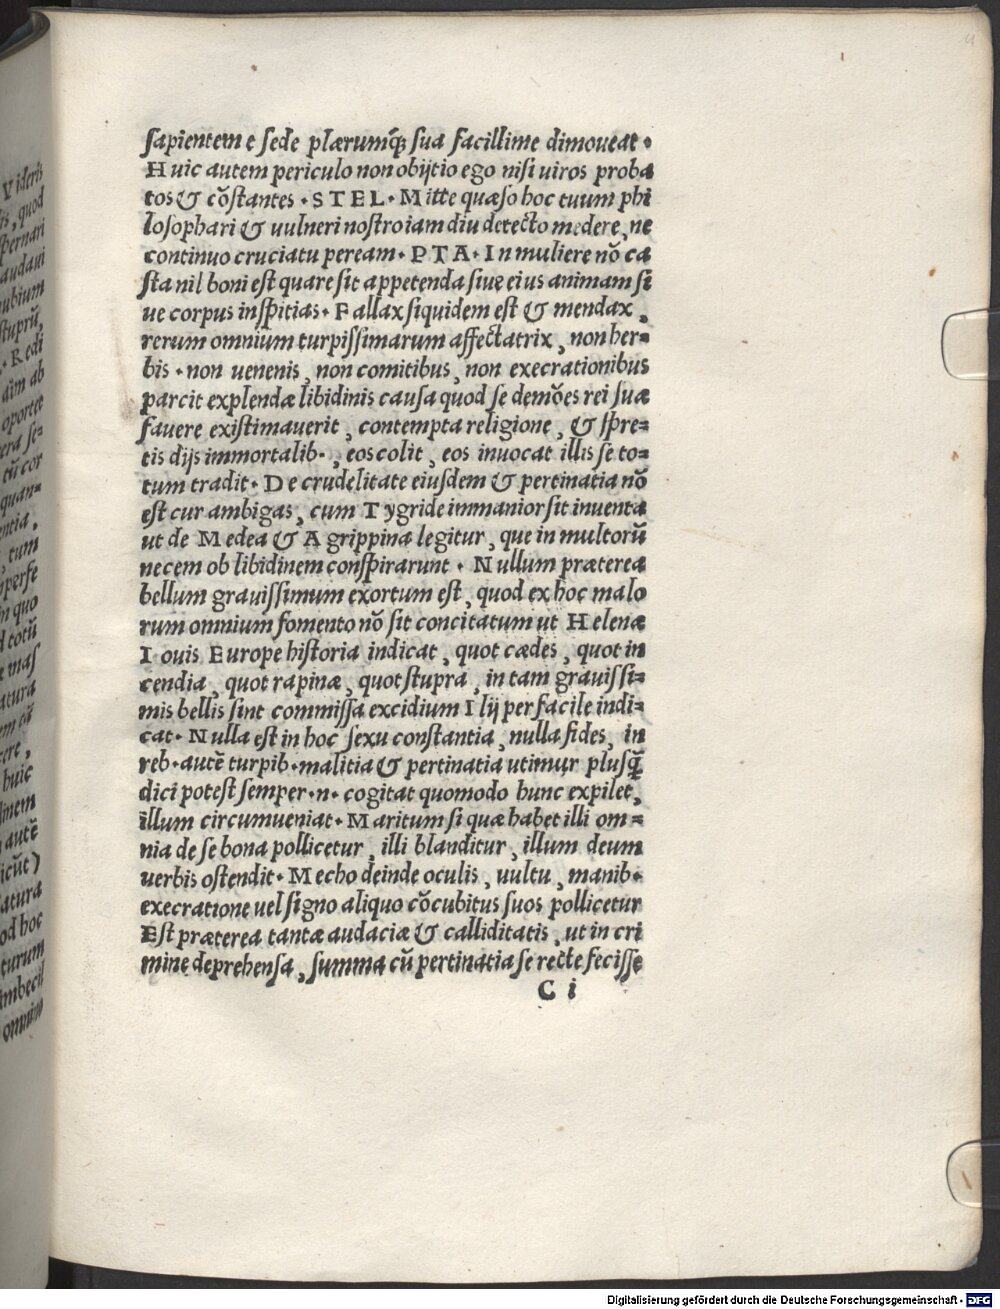 sapientem e sede plærumq̃ sua facillime dimoueat.
Huic autem periculo non obijtio ego nisi uiros proba
tos & cõstantes. STEL. Mitte quæso hoc tuum phi
losophari & uulneri nostro iam diu detecto medere, ne
continuo cruciatu peream. PTA. In muliere nõ ca
sta nil boni est quare sit appetenda siue eius animam si
ue corpus inspitias. Fallax siquidem est & mendax,
rerum omnium turpissimarum affectatrix, non her=
bis. non uenenis, non comitibus, non execrationibus
parcit explendæ libidinis causa quod se demões rei suæ
fauere existimauerit, contempta religione, & spre=
tis dijs immortalib., eos colit, eos inuocat illis se to=
tum tradit. De crudelitate eiusdem & pertinatia nõ
est cur ambigas, cum Tygride immanior sit inuenta
ut de Medea & Agrippina legitur, que in multorũ
necem ob libidinem conspirarunt. Nullum præterea
bellum grauissimum exortum est, quod ex hoc malo
rum omnium fomento nõ sit concitatum ut Helenæ
Iouis Europe historia indicat, quot cædes, quot in
cendia, quot rapinæ, quot stupra, in tam grauissi=
mis bellis sint commissa excidium Ilij per facile indi=
cat. Nulla est in hoc sexu constantia, nulla fides, in
reb. autẽ turpib. malitia & pertinatia utimur plusq̃
dici potest semper .n. cogitat quomodo hunc expilet,
illum circumueniat. Maritum si quæ habet illi om=
nia de se bona pollicetur, illi blanditur, illum deum
uerbis ostendit. Mecho deinde oculis, uultu, manib.
execratione uel signo aliquo cõcubitus suos pollicetur
Est præterea tantæ audaciæ & calliditatis, ut in cri
mine deprehensa, summa cũ pertinatia se recte fecisse
C i
Videris
quod
spernari
audaui
ubium
stuprũ,
Redi
aĩm ab
oportet
se=
cor
quan=
tum
in quo
totũ
mas
natura
huic
autẽ
natura
hoc
omnino
Digitalisierung gefördert durch die Deutsche Forschungsgemeinschaft - DFG